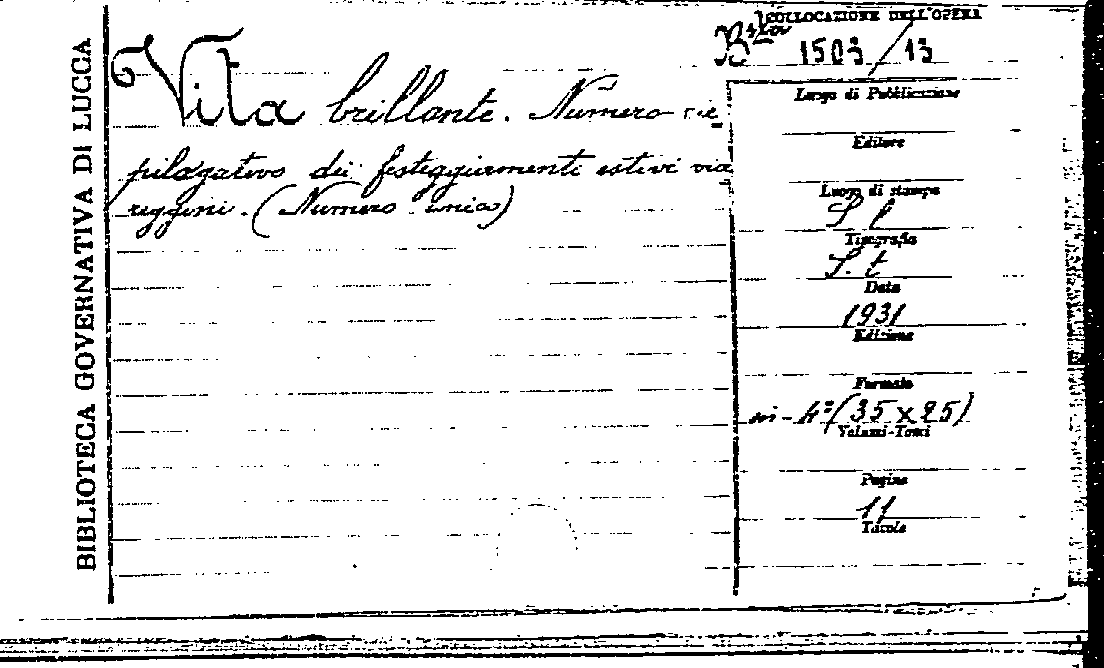 BIBLIOTECA GOVERNATIVA DI LUCCA
Vita brillante. Numero rie
pilogativo dei festeggiamenti estivi via
reggini. (Numero unico)
COLLOCAZIONE DELL'OPERA
Bta 1503/13
Luogo di Pubblicazione
Editore
Luogo di stampa
S l
Tipografia
S. t
Data
1931
Edizione
Formato
in-4º (35 x 25)
Volumi-Tomi
Pagine
11
Tavole